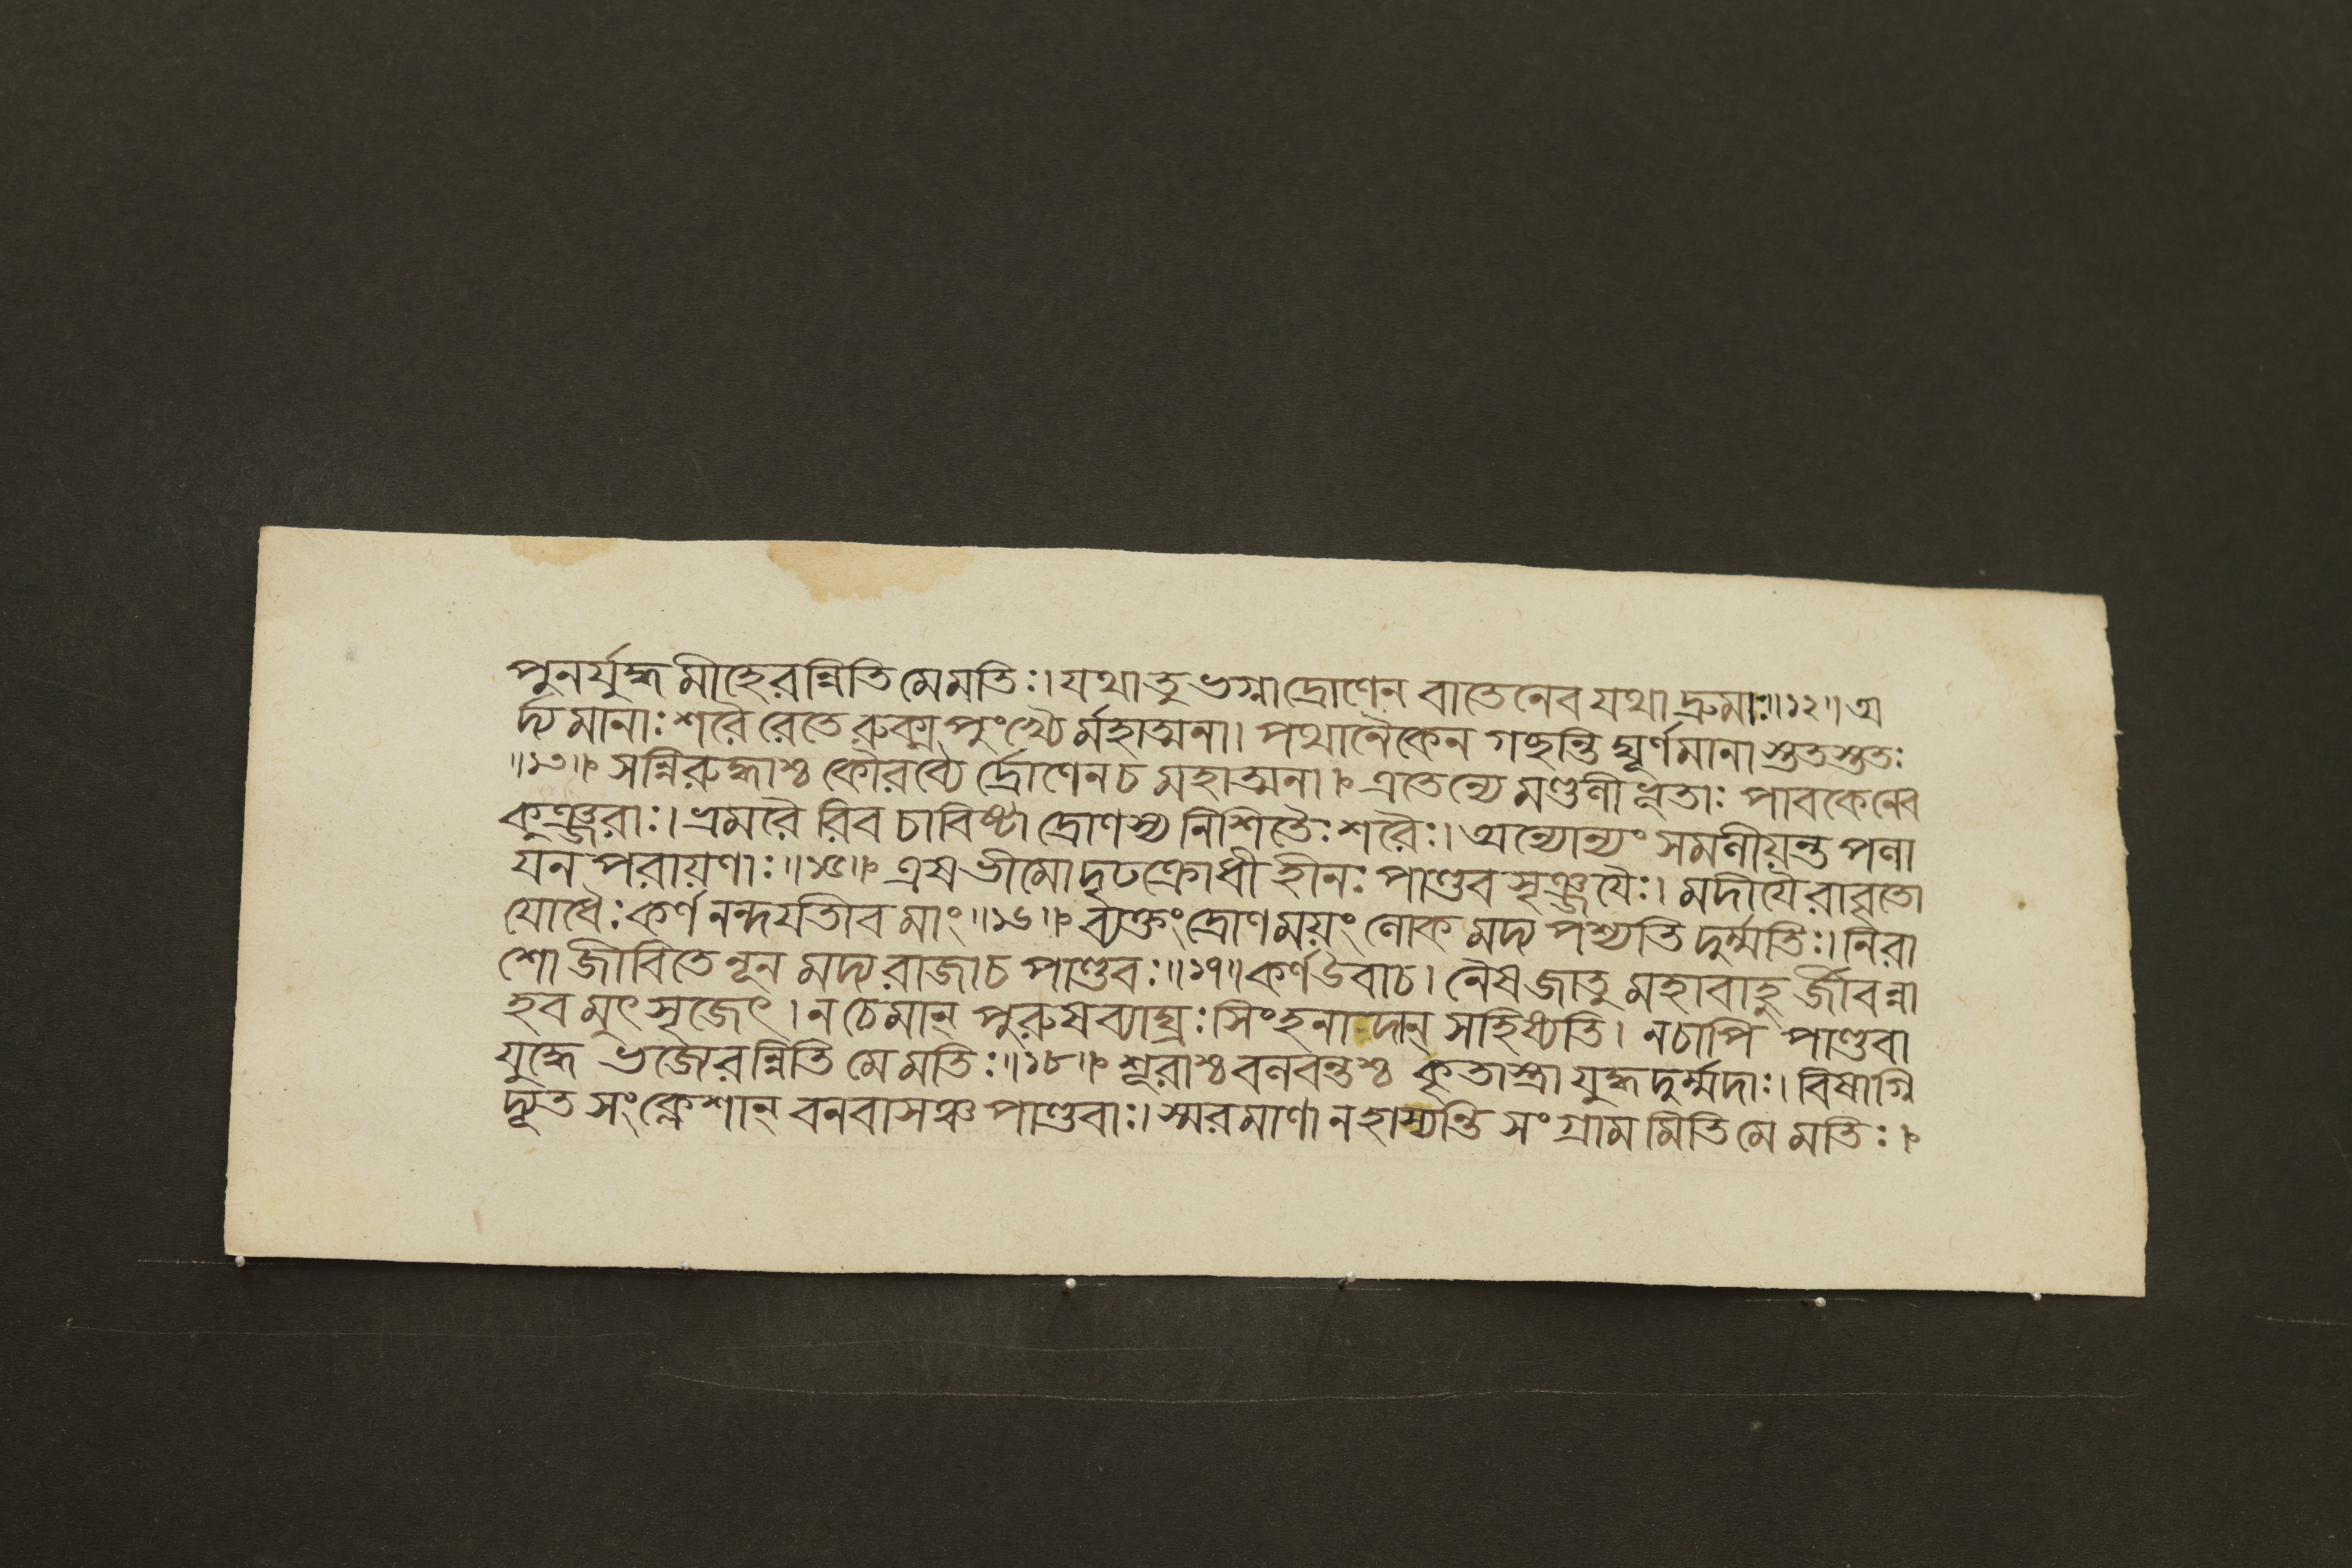 পুনর্যুদ্ধমীহেরন্নিতি মেমতিঃ। যথা তু ভগ্নাদ্রোণেন বাতেনেব যথা দ্রুমাঃ॥১২॥ অ
র্দ্যমানাঃ শরৈরেতে রুক্মপুংখৈর্মহাত্মনা। পথানৈকেন গচ্ছন্তি ঘূর্ণমানাস্ততস্ততঃ
॥১৩॥ সন্নিরুদ্ধাশ্চ কৌরব্যে র্দ্রোণেনচ মহাত্মনা। এতেন্যে মণ্ডলীভূতাঃ পাবকেনেব
কুঞ্জরাঃ। ভ্রমরৈ রিব চাবিষ্টা দ্রোণস্য নিশিতৈঃ শরৈঃ। অন্যোন্যং সমলীয়ন্ত পলা
যন পরায়ণাঃ॥১৫॥ এষ ভীমো দৃঢক্রোধী হীনঃ পাণ্ডব সৃঞ্জযৈঃ। মদীযৈরাবৃতো
যোধৈঃ কর্ণ নন্দযতিব মাং॥১৬॥ ব্যক্তং দ্রোণময়ং লোক মদ্য পশ্যতি দুর্ম্মতিঃ। নিরা
শো জীবিতে নূন মদ্য রাজাচ পাণ্ডবঃ॥১৭॥ কর্ণ উবাচ। নৈষ জাতু মহাবাহু র্জীবন্না
হব মুৎসৃজেৎ। ন চেমান্ পুরুষব্যাঘ্রঃ সিংহনাদান্ সহিষ্যতি। নচাপি পাণ্ডবা
যুদ্ধে ভজেরন্নিতি মে মতিঃ॥১৮॥ শূরাশ্চ বলবন্তশ্চ কৃতাস্ত্রা যুদ্ধদুর্ম্মদাঃ। বিষাগ্নি
দ্যূত সংক্লেশান্ বনবাসঞ্চ পাণ্ডবাঃ। স্মরমাণা নহাস্যন্তি সংগ্রাম মিতি মে মতিঃ।